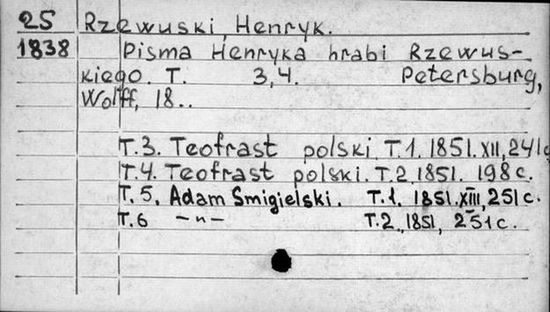 25 Rzewuski, Henryk.
1838 Pisma Henryka hrabi Rzewus-
kiego. T. 3,4. Petersburg,
Wolff, 18..
T.3. Teofrast polski. T.1. 1851. XII, 241c
T.4. Teofrast polski. T.2. 1851. 198 c.
T.5. Adam Smigielski. T.1. 1851. XIII, 251 c.
T.6 -"- T.2., 1851, 251 c.